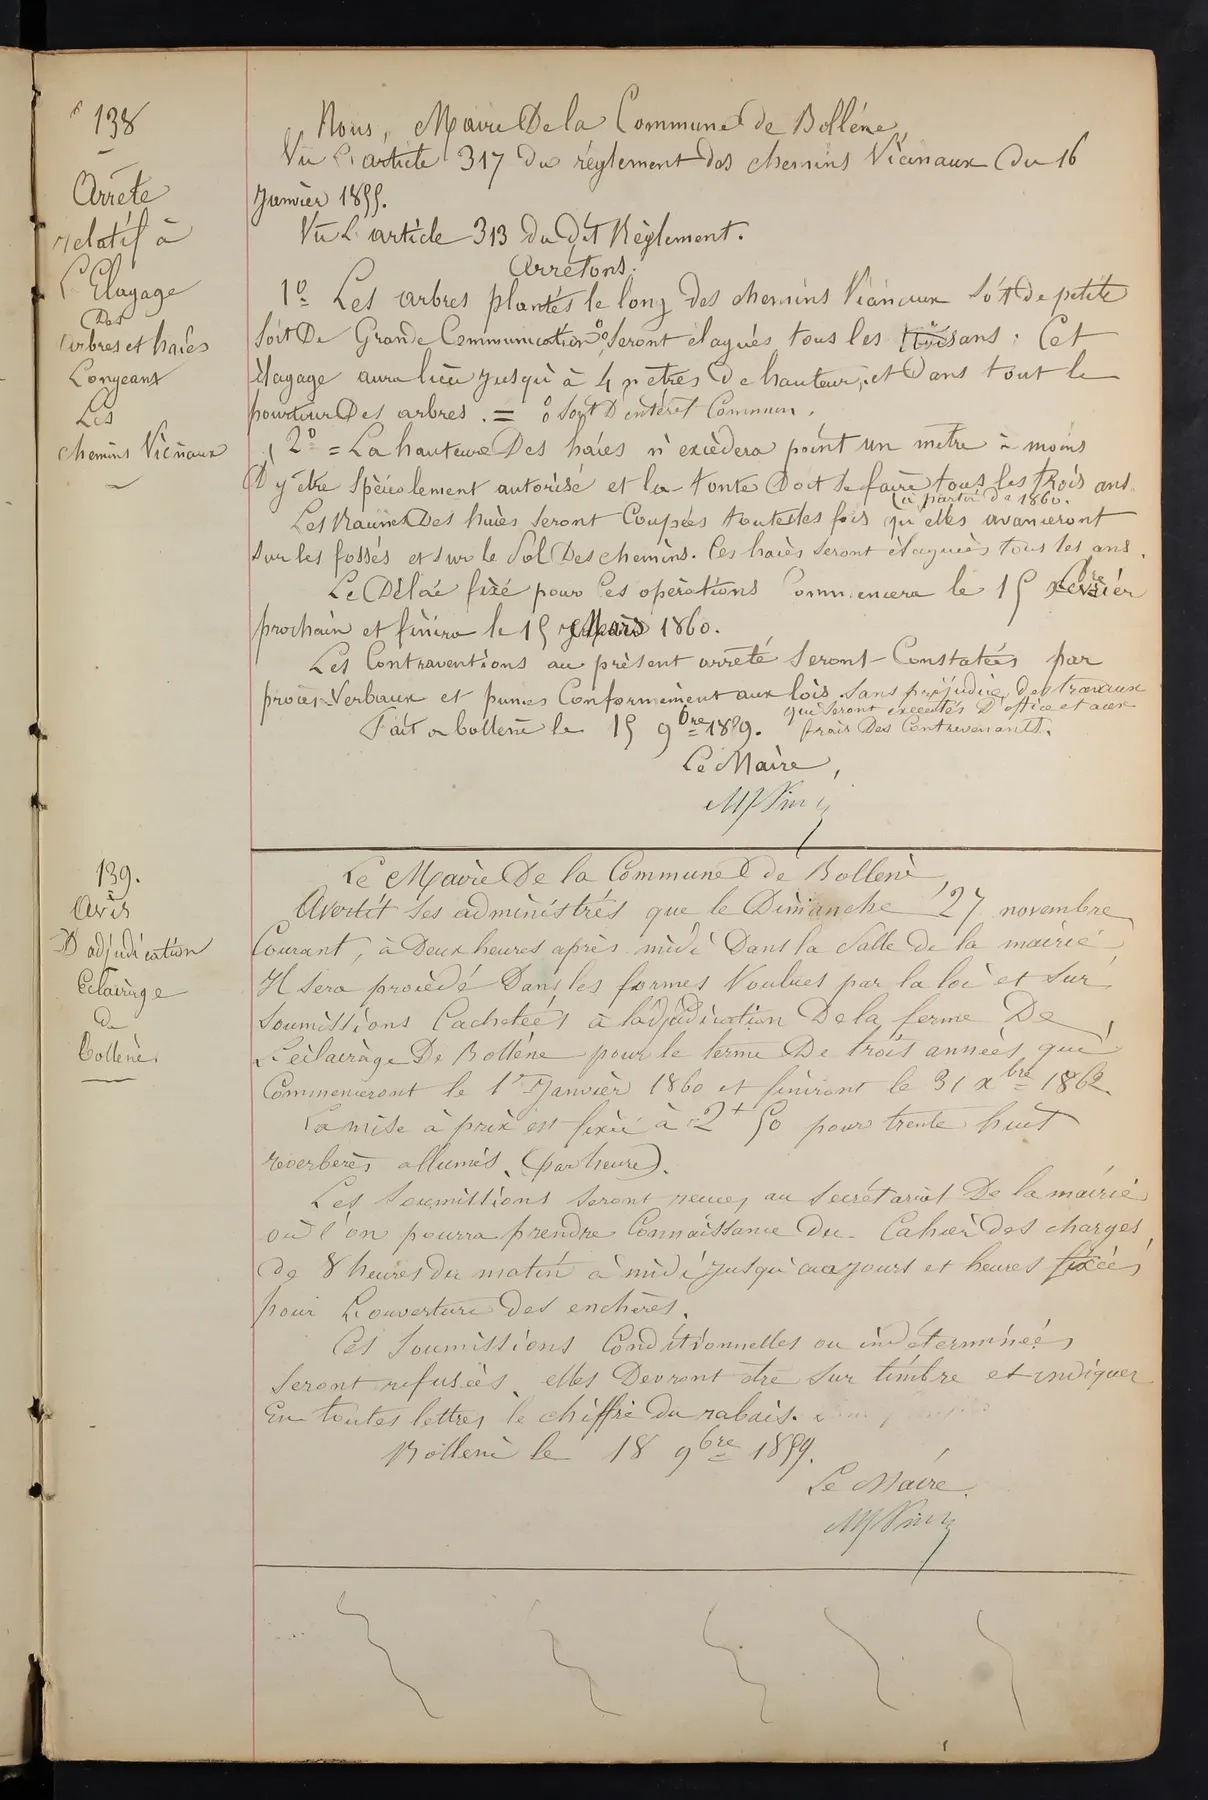 138
Arrête
relatif à
L'Elagage
Des
arbres et haies
Longeant
Les
chemins Vicinaux
Nous, Maire De la Commune de Bollène,
Vu L'article 317 du règlement des chemins Vicinaux Du 16
Janvier 1855.
Vu L'article 313 du dit Règlement.
Arrêtons.
1° Les arbres plantés le long des chemins Vicinaux soit de petite
soit De Grande Communication seront élagués tous les ans : Cet
élagage aura lieu jusqu'à 4 mètres De hauteur, et Dans tout le
pourtour Des arbres. = soit D'intérêt Commun.
2° = La hauteur Des haies n'excèdera point un mètre à moins
D'y être spécialement autorisé et la tonte Doit se faire tous les trois ans
à partir de 1860.
Les Racines Des haies seront Coupées toutes les fois qu'elles avanceront
sur les fossés et sur le sol Des chemins. Ces haies seront élaguées tous les ans.
Le Délai fixé pour Ces opérations Commencera le 15 xbre
prochain et finira le 15 Mars 1860.
Les Contraventions au présent arrêté seront Constatées par
procès-Verbaux et punies Conformément aux lois. sans préjudice des travaux
qui seront exécutés D'office et aux
frais Des Contrevenants.
Fait a bollène le 15 9bre 1859.
Le Maire,
139.
Avis
D'adjudication
Eclairage
de
bollène
Le Maire De la Commune de Bollène,
Avertit ses administrés que le Dimanche 27 novembre
Courant, à Deux heures après midi Dans la Salle de la mairie
Il sera procédé Dans les formes Voulues par la loi et sur
soumissions Cachetées à l'adjudication De la ferme De
L'éclairage De Bollène pour le terme De trois années, qui
Commenceront le 1er Janvier 1860 et finiront le 31 xbre 1862.
La mise à prix est fixée à 2f 50 pour trente huit
reverbères allumés, (par heure).
Les soumissions seront reçues au Secrétariat De la mairie
où l'on pourra prendre Connaissance Du Cahier des charges,
de 8 heures du matin à midi jusqu'aux jours et heures fixées
pour L'ouverture Des enchères.
Les Soumissions Conditionnelles ou indéterminées
seront refusées, elles Devront être sur timbre et indiquer
En toutes lettres le chiffre Du rabais.
Bollène le 18 9bre 1859.
Le Maire.